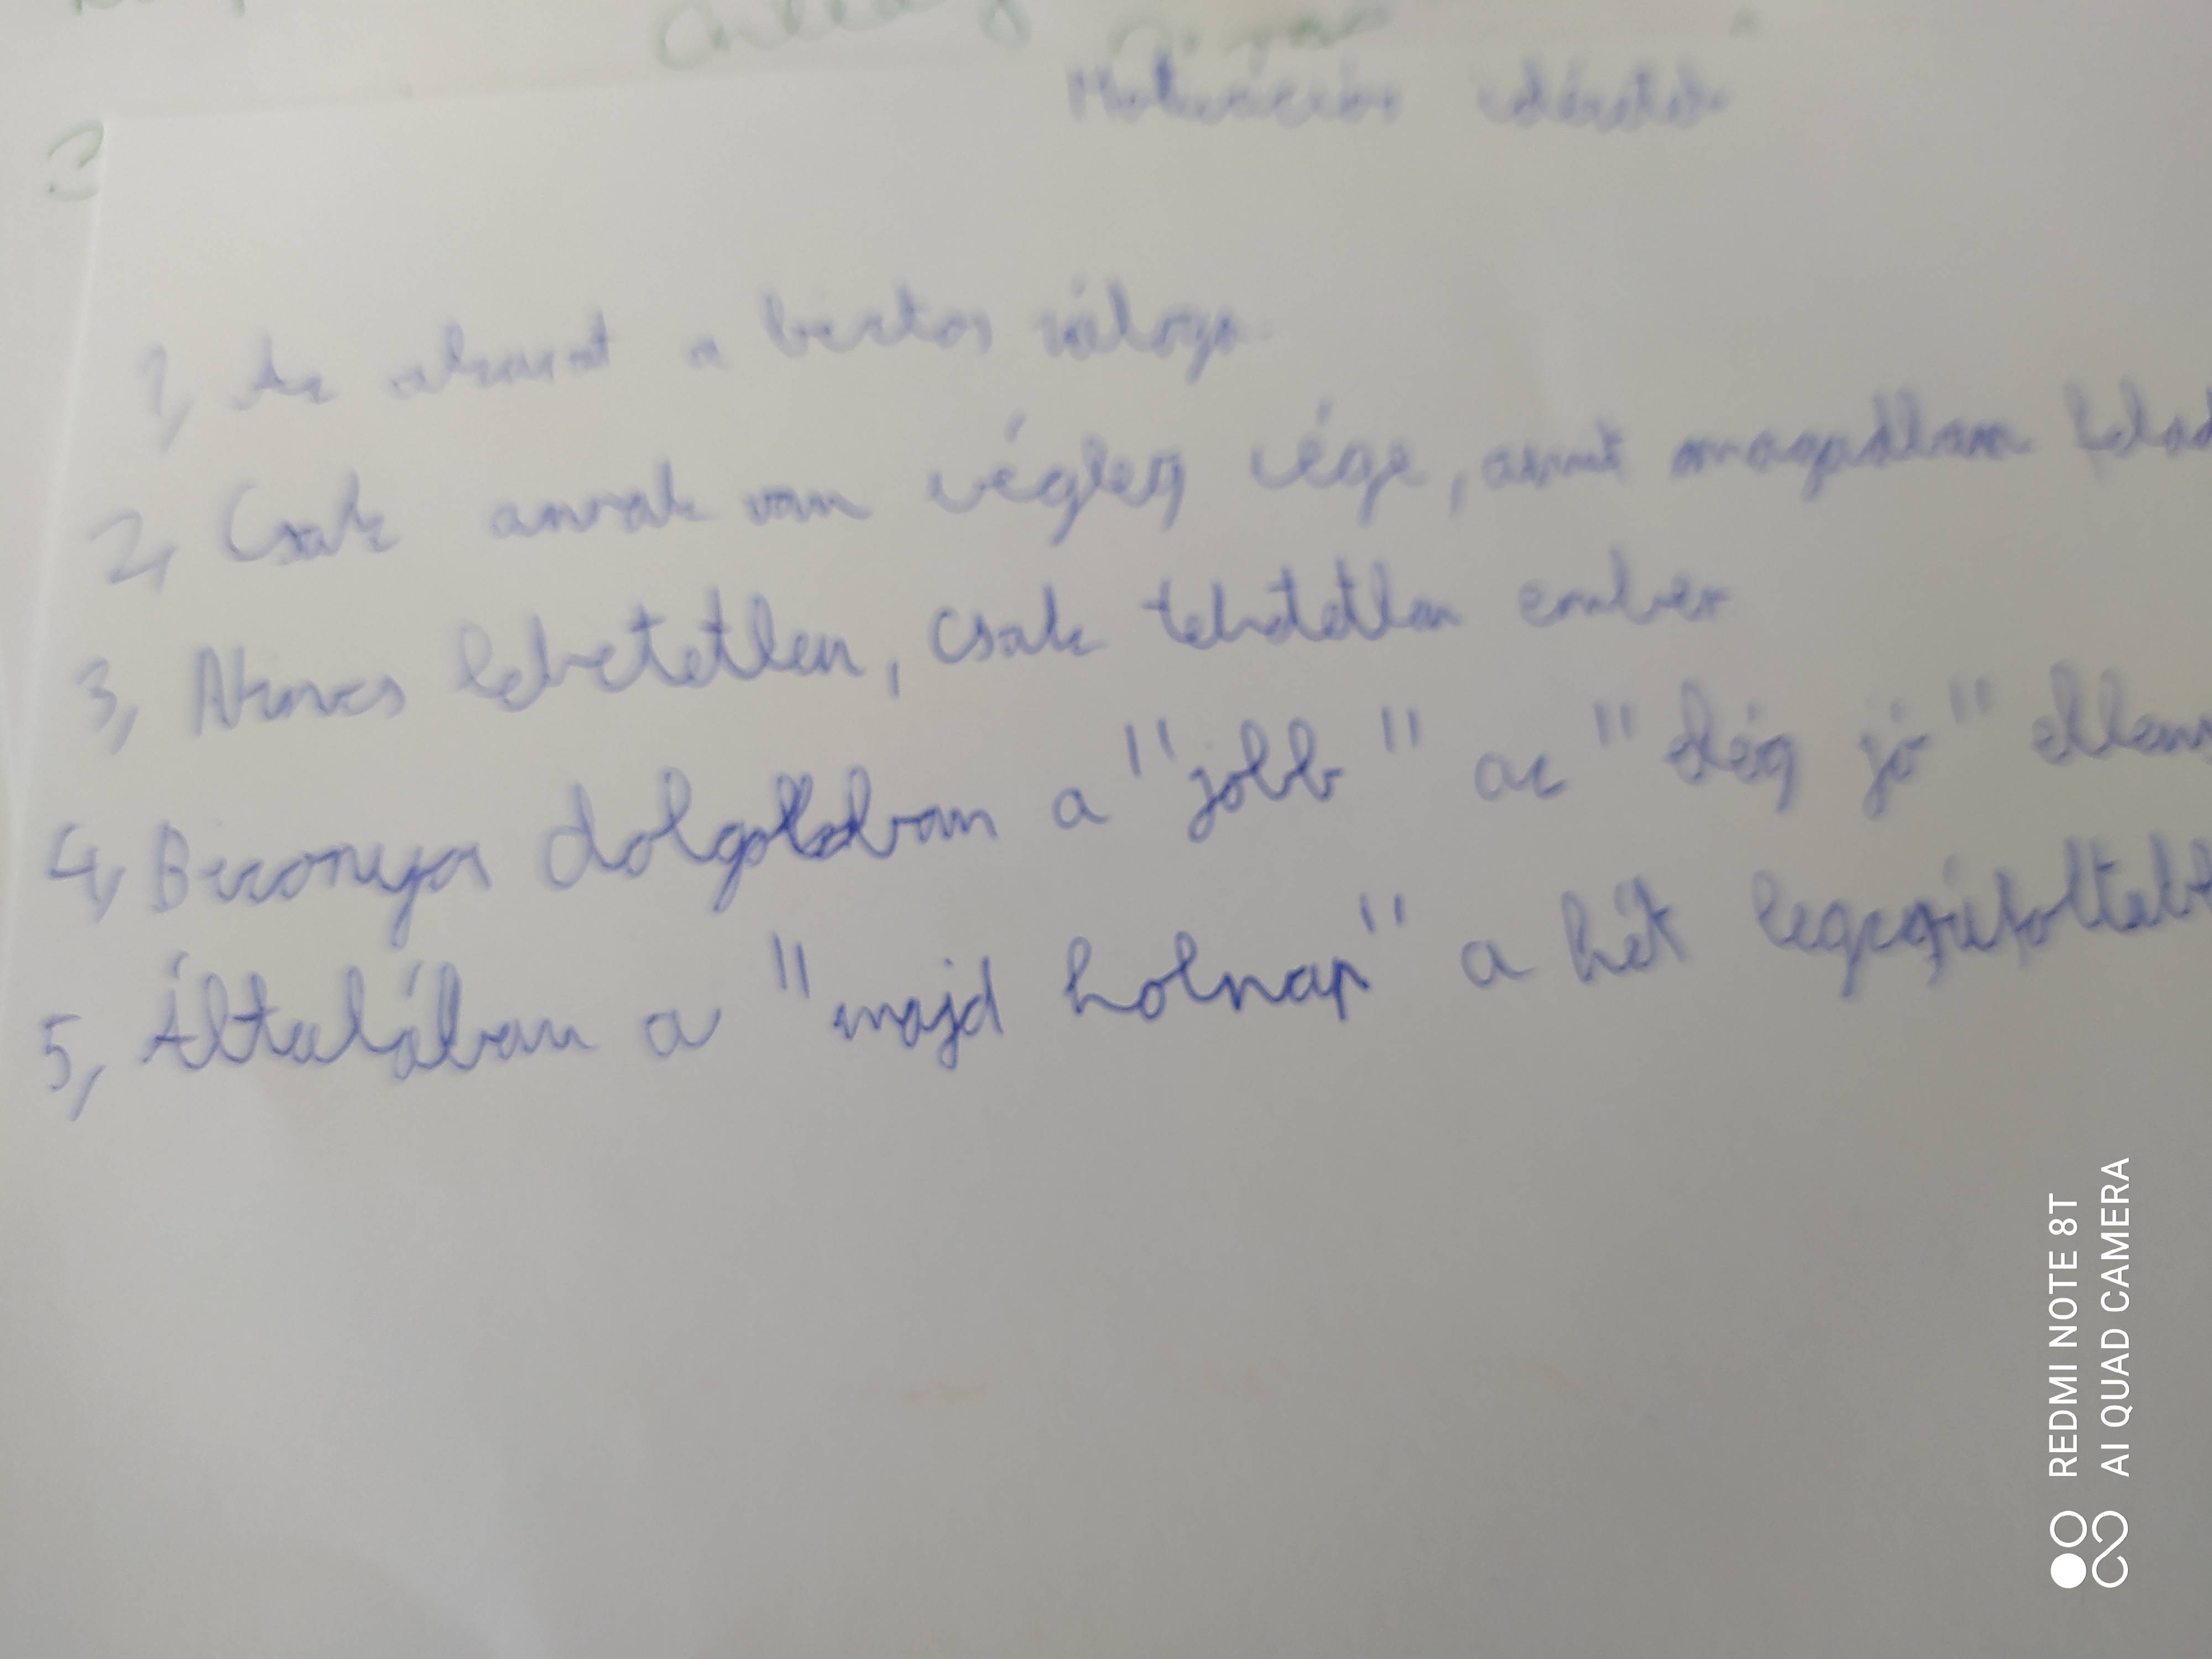 Motivációs idézetek
1, Az akarat a biztos záloga
2, Csak annak van végleg vége, amit magadban felad
3, Nincs lehetetlen, csak tehetetlen ember
4, Bizonyos dolgokban a "jobb" az "elég jó" ellens
5, Általában a "majd holnap" a hét legzsúfoltabb
REDMI NOTE 8T
AI QUAD CAMERA